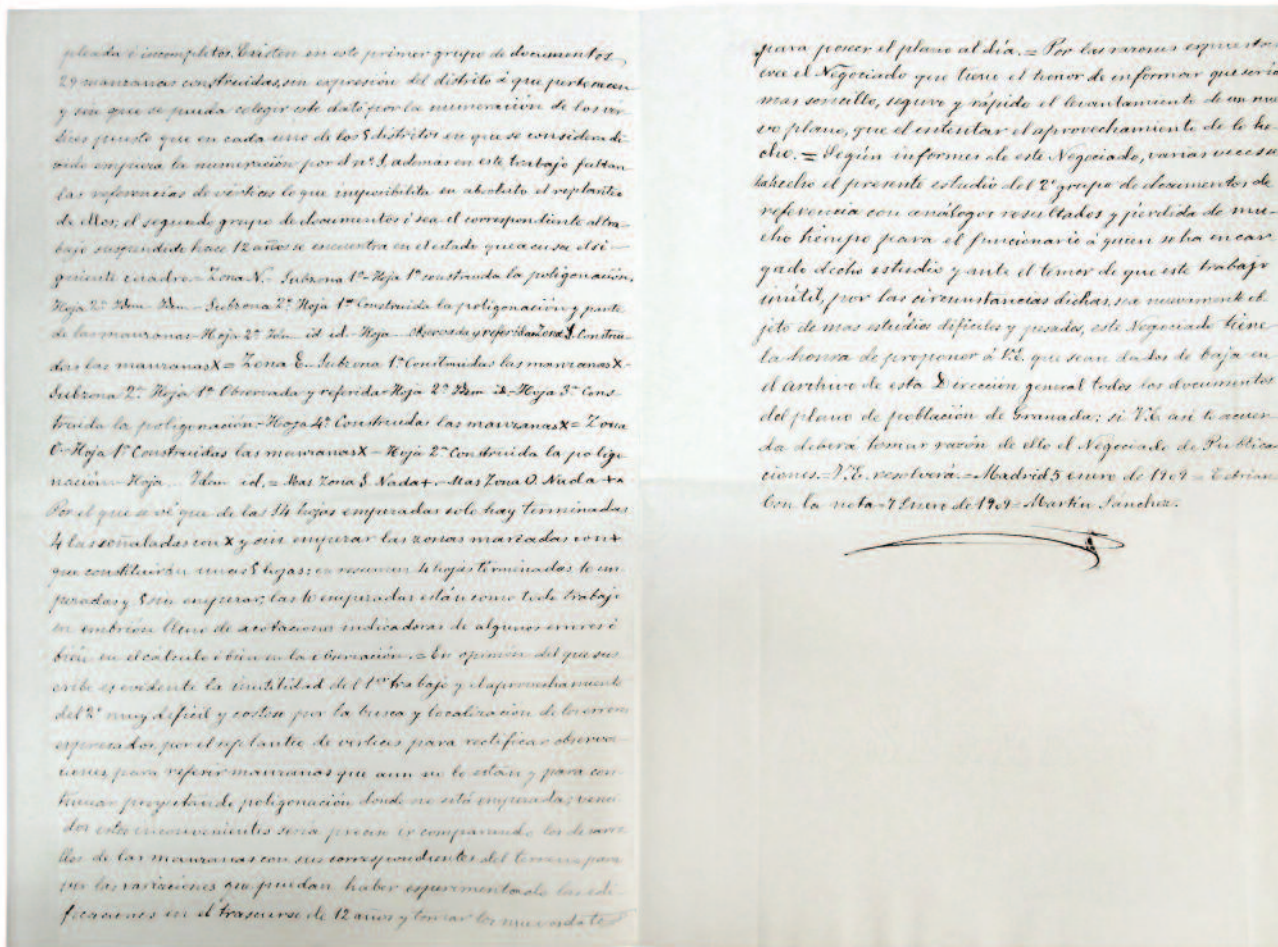 pleada é incompletos. Existen en este primer grupo de documentos
29 manzanas construidas, sin expresión del distrito á que pertenecen
y sin que se pueda colegir este dato por la numeración de los vér-
tices puesto que en cada uno de los 5 distritos en que se considera di-
vidido empieza la numeración por el nº 1, además en este trabajo faltan
las referencias de vértices lo que imposibilita en absoluto el replanteo
de ellos; el segundo grupo de documentos ó sea el correspondiente al tra-
bajo suspendido hace 12 años se encuentra en el estado que acusa el si-
guiente cuadro.- Zona N.- Subzona 1ª- Hoja 1ª construida la poligonación.
Hoja 2ª Idem Idem - Subzona 2ª Hoja 1ª Construida la poligonación y parte
de las manzanas- Hoja 2ª Idm id id.- Hoja - Observada y referida Zona S. Construi-
das las manzanas X = Zona E- Subzona 1ª Construidas las manzanas X-
Subzona 2ª Hoja 1ª Observada y referida- Hoja 2ª Idem id- Hoja 3ª Cons-
truida la poligonación- Hoja 4ª Construidas las manzanas X = Zona
O- Hoja 1ª Construidas las manzanas X - Hoja 2ª Construida la poligo-
nación- Hoja .. Idem id. = Mas Zona S. Nada +.- Mas Zona O. Nada +
Por el que se vé que de las 14 hojas empezadas solo hay terminadas
4 las señaladas con X y sin empezar las zonas marcadas con +
que constituirán unas 5 hojas: en resumen 4 hojas terminadas 10 em-
pezadas y 5 sin empezar; las 10 empezadas están como todo trabajo
en embrión lleno de acotaciones indicadoras de algunos errores ó
bien en el cálculo ó bien en la observación. = En opinión del que sus-
cribe es evidente la inutilidad del 1er trabajo y el aprovechamiento
del 2º muy dificil y costoso por la busca y localización de los errores
expresados por el replanteo de vértices para rectificar observa-
ciones para referir manzanas que aun no lo están y para con-
tinuar proyectando poligonación donde no está empezada; venci-
dos estos inconvenientes sería preciso ir comparando los desarro-
llos de las manzanas con sus correspondientes del terreno para
ver las variaciones que puedan haber experimentado las edi-
ficaciones en el trascurso de 12 años y tomar los nuevos datos
para poseer el plano al día. = Por las razones expuestas
cree el Negociado que tiene el honor de informar que sería
mas sencillo, seguro y rápido el levantamiento de un nue-
vo plano, que el intentar el aprovechamiento de lo he-
cho. = Según informes de este Negociado, varias veces se
ha hecho el presente estudio del 2º grupo de documentos de
referencia con análogos resultados y pérdida de mu-
cho tiempo para el funcionario á quien se ha encar-
gado dicho estudio y ante el temor de que este trabajo
inútil, por las circunstancias dichas, sea nuevamente ob-
jeto de mas estudios dificiles y pesados, este Negociado tiene
la honra de proponer á V.E. que sean dados de baja en
el archivo de esta Dirección general todos los documentos
del plano de población de Granada: si V.E. asi lo acuer-
da deberá tomar razón de ello el Negociado de Publica-
ciones.- V.E. resolverá.- Madrid 5 enero de 1909 =
Con la nota- 7 Enero de 1909- Martín Sánchez.